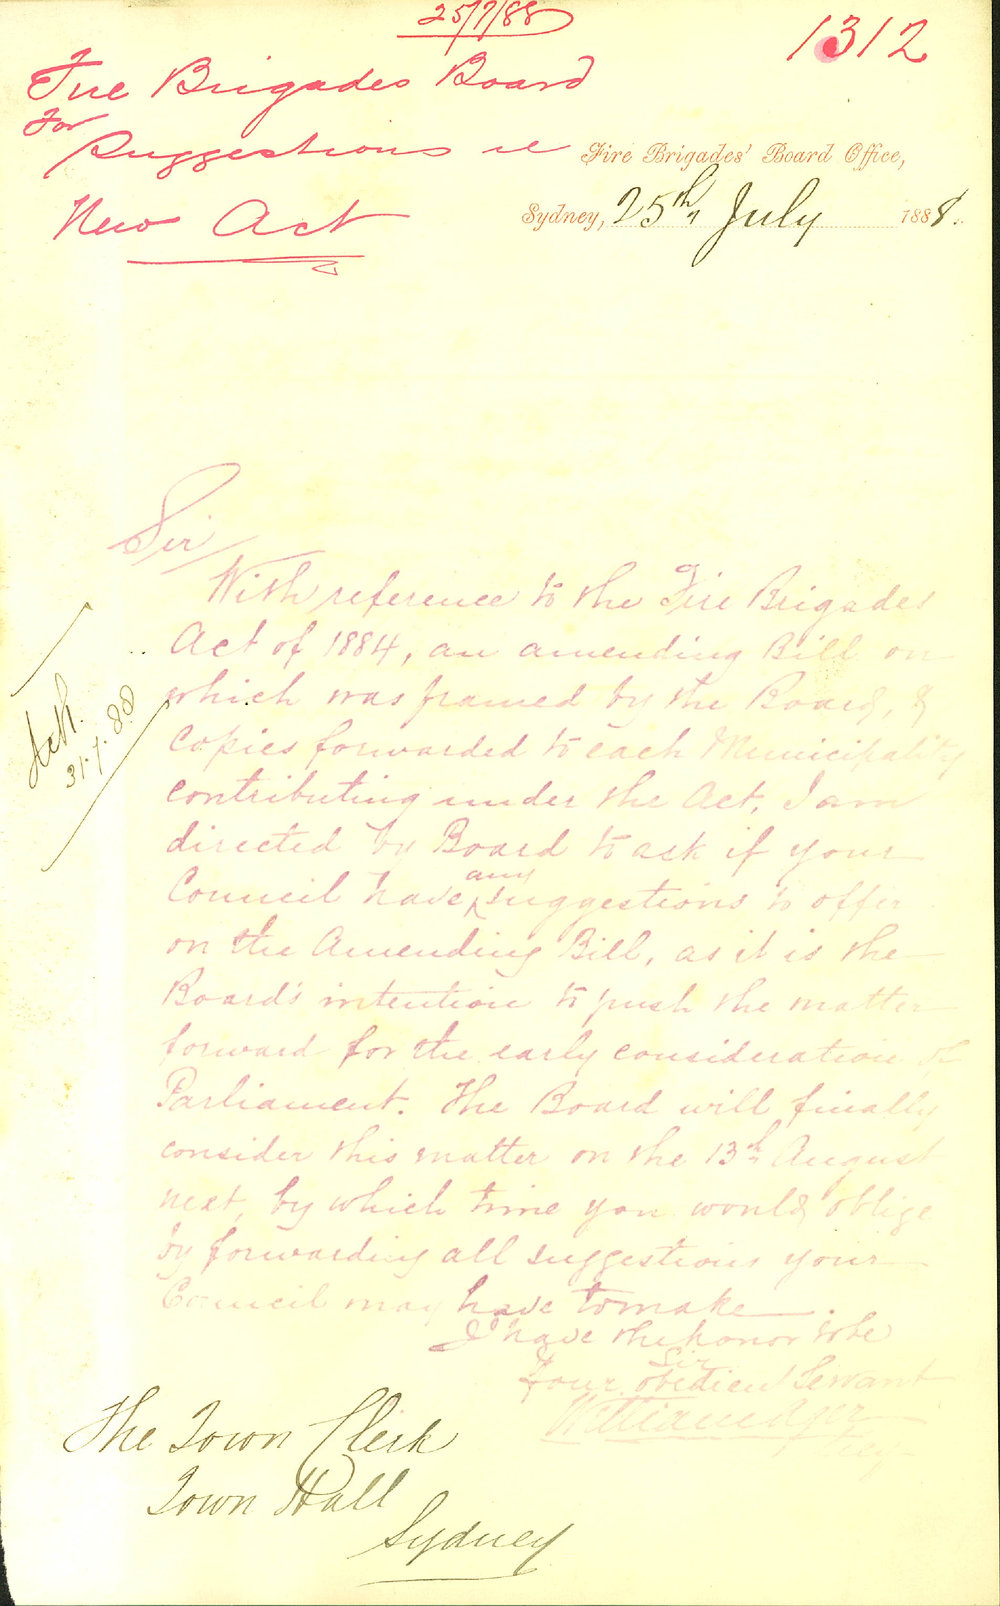 25/7/88
1312
Fire Brigades Board
For
Suggestions re
New Act
Fire Brigades' Board Office,
Sydney, 25th July 1888.
Sir
With reference to the Fire Brigades
Act of 1884, an amending Bill on
which was framed by the Board, &
copies forwarded to each Municipality
contributing under the Act, I am
directed by Board to ask if your
Council have any suggestions to offer
on the Amending Bill, as it is the
Board's intention to push the matter
forward for the early consideration of
Parliament. The Board will finally
consider this matter on the 13th August
next, by which time you would oblige
by forwarding all suggestions your
Council may have to make.
I have the honor to be
Sir
Your obedient Servant
Secy
Ack.
31.7.88
The Town Clerk
Town Hall
Sydney